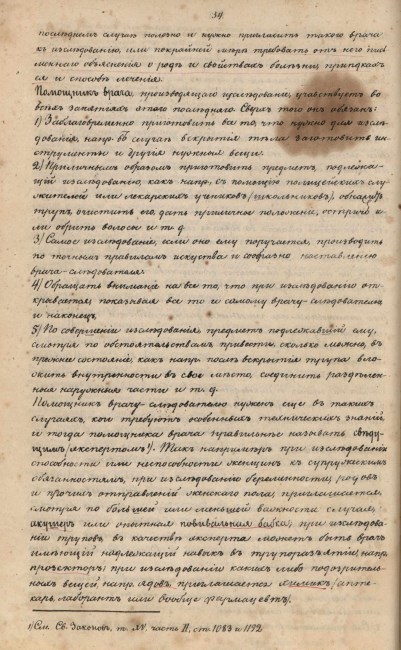 34
последнемъ случаѣ полезно и нужно пригласить такого врача
къ изслѣдованію, или покрайней мѣрѣ требовать отъ него пись
меннаго объясненія о родѣ и свойствахъ болѣзни, припадкахъ
ея и способѣ леченія.
Помощникъ врача, производящаго изслѣдованіе, участвуетъ во
всѣхъ занятіяхъ этого послѣдняго. Сверхъ того онъ обязанъ:
1) Заблаговременно приготовить все то, что нужно для изслѣ-
дованія, напр. въ случаѣ вскрытія тѣла заготовить ин-
струменты и другія нужныя вещи.
2) Приличнымъ образомъ приготовить предметъ, подлежа-
щій изслѣдованію, какъ напр. съ помощію полицейскихъ слу-
жителей или лекарскихъ учениковъ (школьниковъ), обнажить
трупъ, очистить его, дать приличное положеніе, остричь и
ли обрить волосы и т. д.
3) Самое изслѣдованіе, если оно ему поручается, производить
по точнымъ правиламъ искуства и сообразно наставленію
врача-слѣдователя.
4) Обращать вниманіе на все то, что при изслѣдованіи от-
крывается, показывая все то и самому врачу-слѣдователю,
и наконецъ,
5) По совершеніи изслѣдованія, предметъ подлежавшій ему,
смотря по обстоятельствамъ, привести, сколько можно, въ
прежнее состояніе, какъ напр. послѣ вскрытія трупа вло-
жить внутренности въ свое мѣсто, соединить раздѣлен-
ныя наружныя части и т. д.
Помощникъ врачу-слѣдователю нуженъ еще въ такихъ
случаяхъ, кои требуютъ особенныхъ техническихъ знаній
и тогда помощника врача правильнѣе называть свѣду-
щимъ (экспертомъ¹). Такъ напримѣръ при изслѣдованіи
способности или неспособности женщинъ къ супружескимъ
обязанностямъ, при изслѣдованіи беременности, родовъ
и прочихъ отправленій женскаго пола, приглашается,
смотря по большей или меньшей важности случая,
акушеръ или опытная повивальная бабка; при изслѣдова-
ніи труповъ въ качествѣ эксперта можетъ быть врачъ
имѣющій надлежащій навыкъ въ трупоразъятіи, напр.
прозекторъ; при изслѣдованіи какихъ либо подозритель-
ныхъ вещей, напр. ядовъ, приглашается химикъ (апте-
карь, лаборантъ или вообще фармацевтъ).
1) См. Св. Законовъ, т. XV, часть II, ст. 1083 и 1192